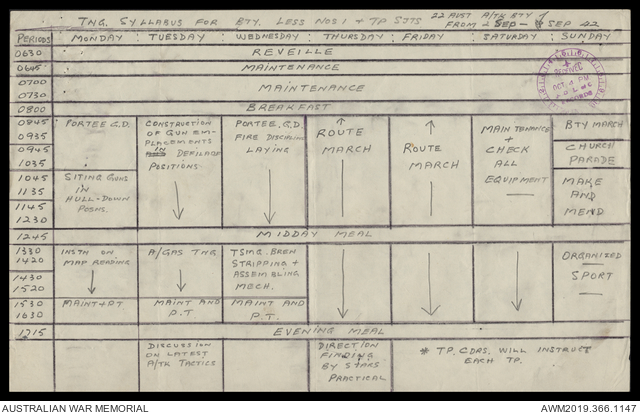 TNG. SYLLABUS FOR BTY. LESS NOS 1 & TP SJTS 22 AUST A/TK BTY
FROM 2 SEP - 8 SEP 42
PERIODS MONDAY TUESDAY WEDNESDAY THURSDAY FRIDAY SATURDAY SUNDAY
0630 REVEILLE
0645 MAINTENANCE
0700
0730 MAINTENANCE
0800 BREAKFAST
0845 PORTEE G.D. CONSTRUCTION PORTEE. G.D. ROUTE MAINTENANCE BTY MARCH
0935 OF GUN EM- FIRE DISCIPLINE MARCH ROUTE + CHURCH
0945 PLACEMENTS LAYING MARCH CHECK PARADE
1035 IN DEFILADE ALL
POSITIONS
1045 SITING GUNS EQUIPMENT MAKE
1135 IN AND
1145 HULL-DOWN MEND
1230 POSNS.
1245 MIDDAY MEAL
1330 INSTN ON A/GAS TNG TSMG. BREN ORGANIZED
1420 MAP READING STRIPPING + SPORT
1430 ASSEMBLING
1520 MECH.
1530 MAINT + PT MAINT AND MAINT AND
1630 P.T P.T.
1715 EVENING MEAL
DISCUSSION DIRECTION * TP. CDRS. WILL INSTRUCT
ON LATEST FINDING EACH TP.
A/TK TACTICS BY STARS
PRACTICAL
AUSTRALIAN WAR MEMORIAL AWM2019.366.1147